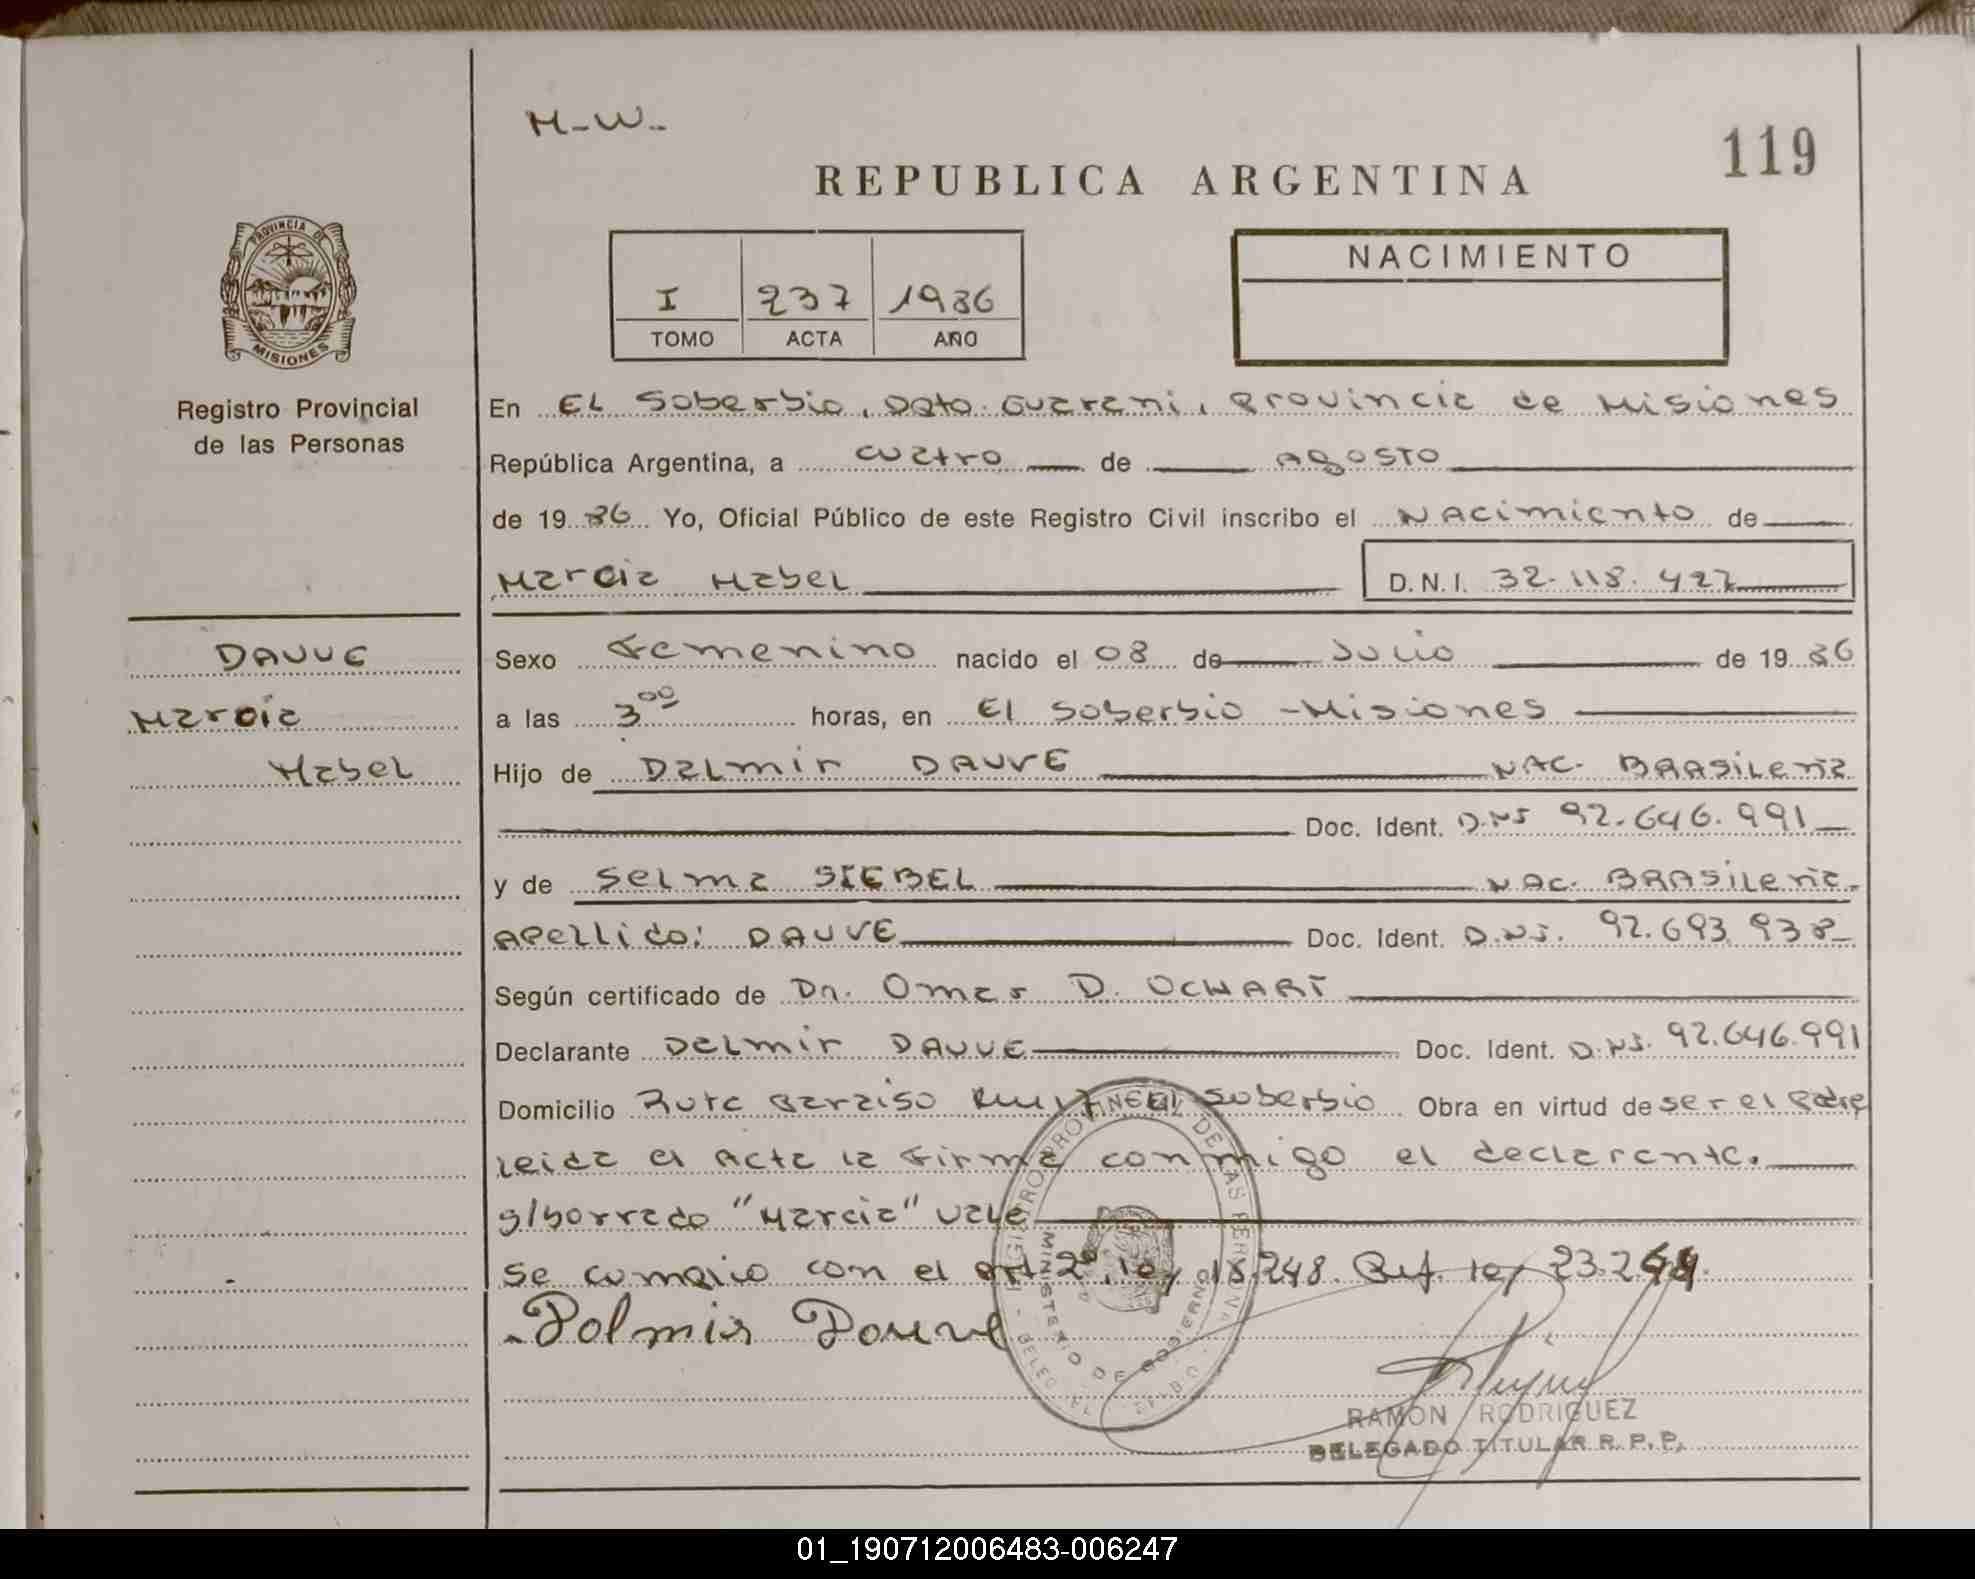 M-W--
119
REPUBLICA ARGENTINA
PROVINCIA DE
MISIONES
Registro Provincial
de las Personas
NACIMIENTO
I 237 1986
TOMO ACTA AÑO
En EL Soberbio, Dpto. Guarani, Provincia de Misiones
República Argentina, a cuatro de Agosto
de 1986 Yo, Oficial Público de este Registro Civil inscribo el Nacimiento de
Marcia Mabel D.N.I. 32.118.427
DAUVE
Marcia
Mabel
Sexo Femenino nacido el 08 de Julio de 1986
a las 3⁰⁰ horas, en El Soberbio - Misiones
Hijo de Delmir DAUVE NAC. BRASileña
Doc. Ident. D.NI 92.646.991
y de Selma SIEBEL NAC. BRASileña
Apellido: DAUVE Doc. Ident. D.NI. 92.693.938
Según certificado de Dr. Omar D. OCHART
Declarante Delmir DAUVE Doc. Ident. D.NI. 92.646.991
Domicilio Ruta Paraiso El Soberbio Obra en virtud de ser el Padre
leida el Acta la firma conmigo el declarante.
s/borrado "Marcia" vale
se cumplio con el art 2º, ley 18.248. Ref. ley 23.264.
Delmir Dauve
REGISTRO PROVINCIAL DE LAS PERSONAS
MINISTERIO DE GOBIERNO
RAMON RODRIGUEZ
DELEGADO TITULAR R. P. P.
01_190712006483-006247